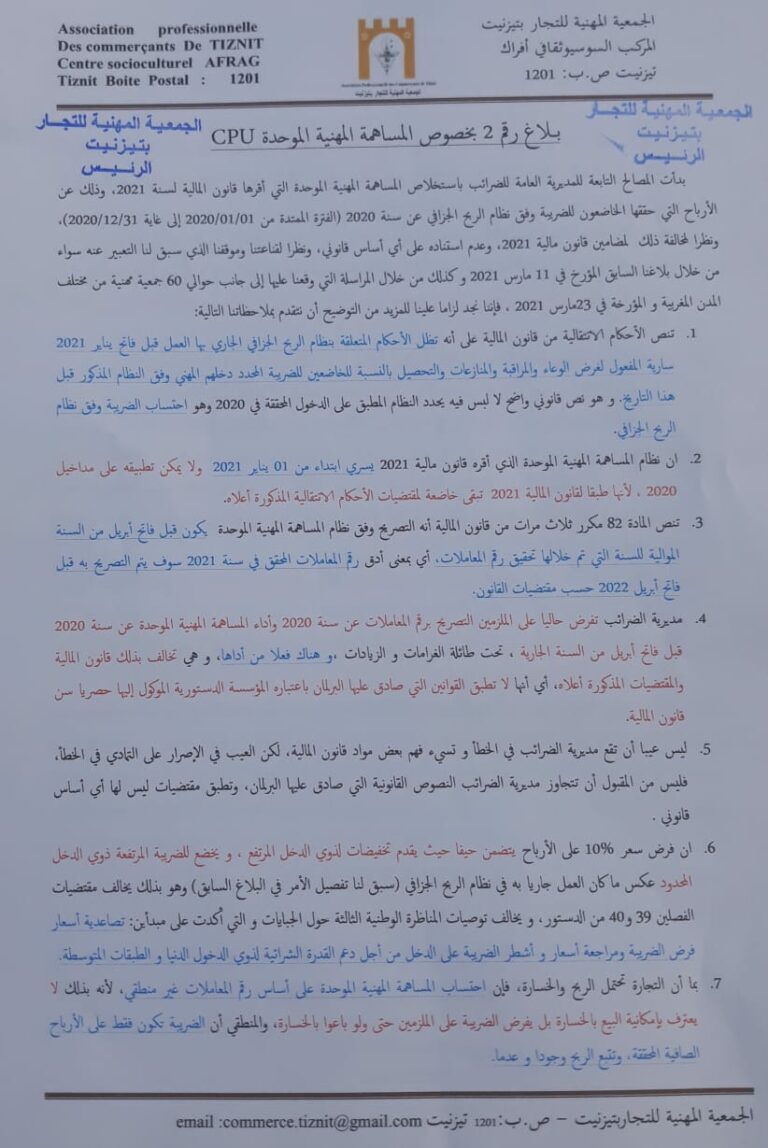 Association professionnelle
Des commerçants De TIZNIT
Centre socioculturel AFRAG
Tiznit Boite Postal : 1201
الجمعية المهنية للتجار بتيزنيت
المركب السوسيوثقافي أفراك
تيزنيت ص.ب: 1201
Association Professionnelle des Commerçants de Tiznit
الجمعية المهنية للتجار بتيزنيت
الجمعية المهنية للتجار
بتيزنيت
الرئيس
الجمعية المهنية للتجار
بتيزنيت
الرئيس
بلاغ رقم 2 بخصوص المساهمة المهنية الموحدة CPU
بدأت المصالح التابعة للمديرية العامة للضرائب باستخلاص المساهمة المهنية الموحدة التي أقرها قانون المالية لسنة 2021، وذلك عن
الأرباح التي حققها الخاضعون للضريبة وفق نظام الربح الجزافي عن سنة 2020 (الفترة الممتدة من 2020/01/01 إلى غاية 2020/12/31)،
ونظرا لمخالفة ذلك لمضامين قانون مالية 2021، وعدم استناده على أي أساس قانوني، ونظرا لقناعتنا وموقفنا الذي سبق لنا التعبير عنه سواء
من خلال بلاغنا السابق المؤرخ في 11 مارس 2021 و كذلك من خلال المراسلة التي وقعنا عليها إلى جانب حوالي 60 جمعية مهنية من مختلف
المدن المغربية و المؤرخة في 23مارس 2021 ، فإننا نجد لزاما علينا للمزيد من التوضيح أن نتقدم بملاحظاتنا التالية:
1. تنص الأحكام الانتقالية من قانون المالية على أنه تظل الأحكام المتعلقة بنظام الربح الجزافي الجاري بها العمل قبل فاتح يناير 2021
سارية المفعول لغرض الوعاء والمراقبة والمنازعات والتحصيل بالنسبة للخاضعين للضريبة المحدد دخلهم المهني وفق النظام المذكور قبل
هذا التاريخ. و هو نص قانوني واضح لا لبس فيه يحدد النظام المطبق على الدخول المحققة في 2020 وهو احتساب الضريبة وفق نظام
الربح الجزافي.
2. ان نظام المساهمة المهنية الموحدة الذي أقره قانون مالية 2021 يسري ابتداء من 01 يناير 2021 ولا يمكن تطبيقه على مداخيل
2020 ، لأنها طبقا لقانون المالية 2021 تبقى خاضعة لمقتضيات الأحكام الانتقالية المذكورة أعلاه.
3. تنص المادة 82 مكرر ثلاث مرات من قانون المالية أنه التصريح وفق نظام المساهمة المهنية الموحدة يكون قبل فاتح أبريل من السنة
الموالية للسنة التي تم خلالها تحقيق رقم المعاملات. أي بمعنى أدق رقم المعاملات المحقق في سنة 2021 سوف يتم التصريح به قبل
فاتح أبريل 2022 حسب مقتضيات القانون.
4. مديرية الضرائب تفرض حاليا على الملزمين التصريح برقم المعاملات عن سنة 2020 وأداء المساهمة المهنية الموحدة عن سنة 2020
قبل فاتح أبريل من السنة الجارية ، تحت طائلة الغرامات و الزيادات ،و هناك فعلا من أداها، و هي تخالف بذلك قانون المالية
والمقتضيات المذكورة أعلاه، أي أنها لا تطبق القوانين التي صادق عليها البرلمان باعتباره المؤسسة الدستورية الموكول إليها حصريا سن
قانون المالية.
5. ليس عيبا أن تقع مديرية الضرائب في الخطأ و تسيء فهم بعض مواد قانون المالية، لكن العيب في الإصرار على التمادي في الخطأ،
فليس من المقبول أن تتجاوز مديرية الضرائب النصوص القانونية التي صادق عليها البرلمان، وتطبق مقتضيات ليس لها أي أساس
قانوني .
6. ان فرض سعر 10% على الأرباح يتضمن حيفا حيث يقدم تخفيضات لذوي الدخل المرتفع ، و يخضع للضريبة المرتفعة ذوي الدخل
المحدود عكس ماكان العمل جاريا به في نظام الربح الجزافي (سبق لنا تفصيل الأمر في البلاغ السابق) وهو بذلك يخالف مقتضيات
الفصلين 39 و40 من الدستور، و يخالف توصيات المناظرة الوطنية الثالثة حول الجبايات و التي أكدت على مبدأين: تصاعدية أسعار
فرض الضريبة ومراجعة أسعار و أشطر الضريبة على الدخل من أجل دعم القدرة الشرائية لذوي الدخول الدنيا و الطبقات المتوسطة.
7. بما أن التجارة تحتمل الربح والخسارة، فإن احتساب المساهمة المهنية الموحدة على أساس رقم المعاملات غير منطقي، لأنه بذلك لا
يعترف بإمكانية البيع بالخسارة بل يفرض الضريبة على الملزمين حتى ولو باعوا بالخسارة، والمنطقي أن الضريبة تكون فقط على الأرباح
الصافية المحققة، وتتبع الربح وجودا و عدما.
الجمعية المهنية للتجاربتيزنيت – ص.ب:1201 تيزنيت email :commerce.tiznit@gmail.com